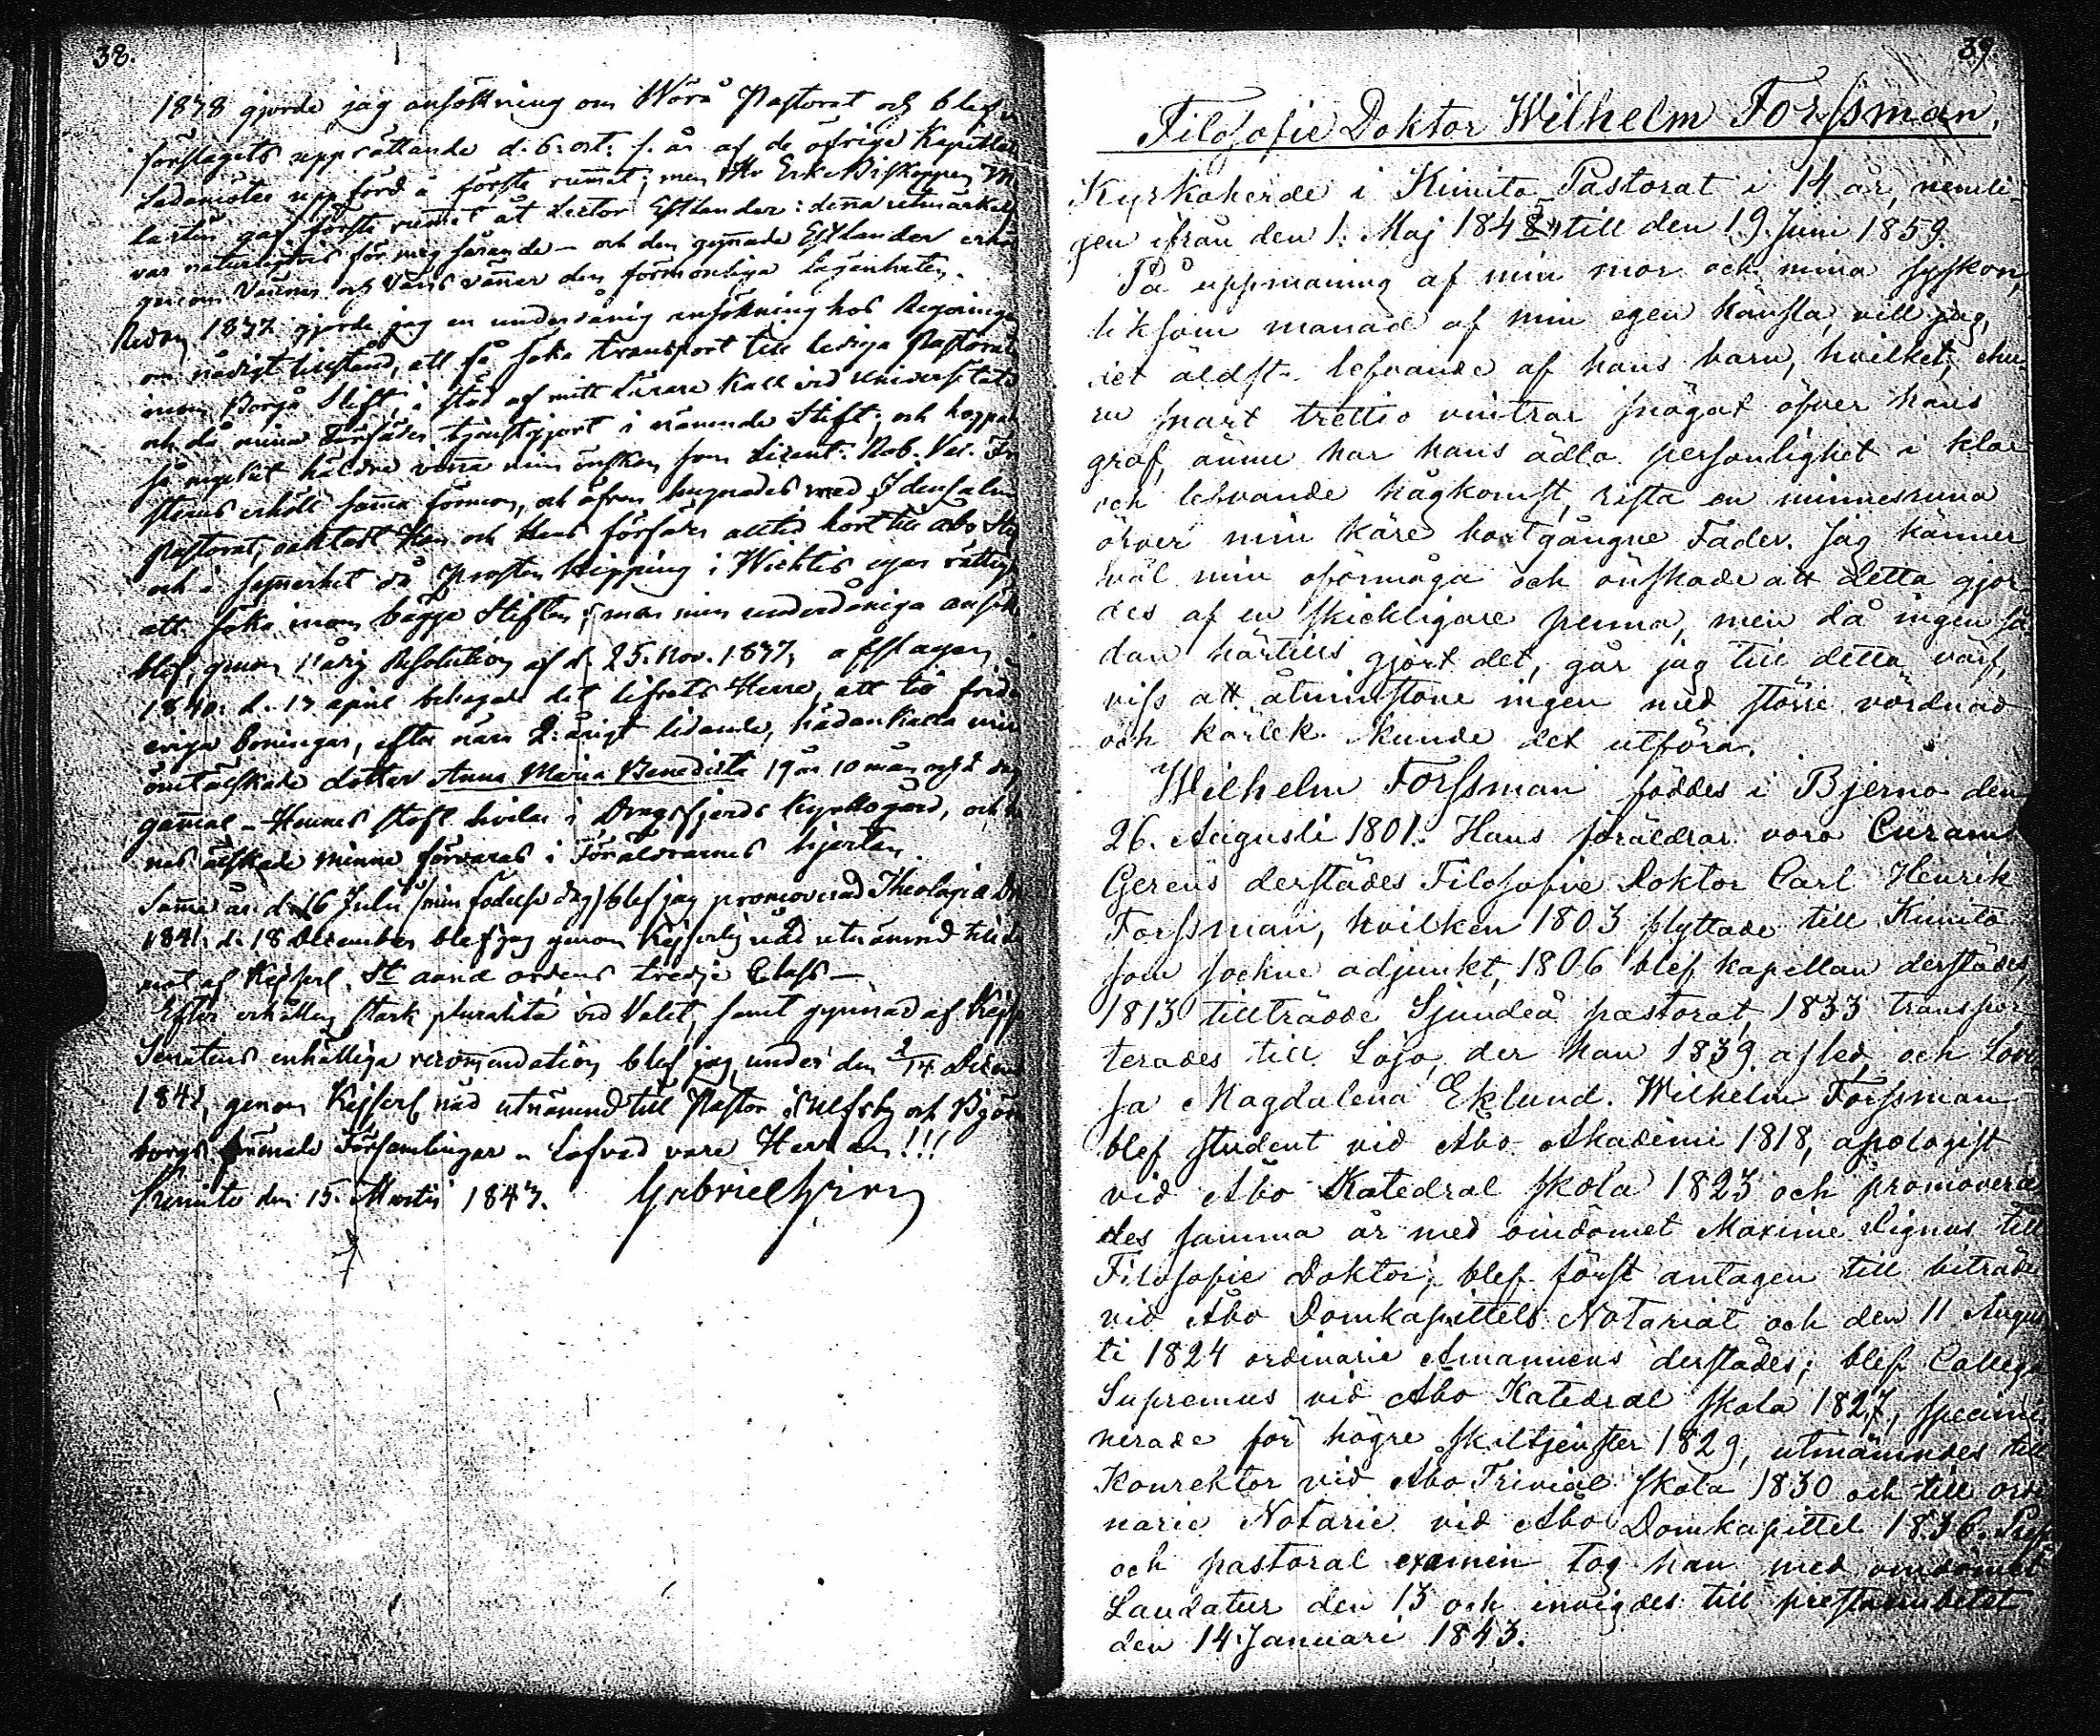 38.
1838 gjorde jag ansökning om Wörå Pastorat och blef
förslagets upprättande d. 6. oct. s. år af de öfrige Kapitlets
Ledamöter uppförd å första rummet; men Hr ErkeBiskoppen
gaf första rummet åt Lector Estlander: denna utmärkelse
var naturligtvis för mig sårande – och den gynnade Estlander
genom Vänner och Väns vänner den förmonliga lägenheten.
Redan 1837 gjorde jag en underdånig ansökning hos Regeringen
om nådigt tillstånd, att få söka transport till lediga Pastorat
inom Borgå Stift, i stöd af mitt Lärare Kall vid Universitetet
och då mina Förfäder tjenstgjort i nämnde Stift; och hoppades
så mycket häldre vinna min önskan som Licent. Rob. Val.
erhöll samma förmon, och äfven hugnades med Idensalmi
Pastorat, oaktadt Han och Hans förfäder alltid hört till Åbo Stift,
och i synnerhet då Prosten Kipping i Wichtis eger rättighet
att söka inom bägge Stiften; men min underdåniga ansökan
blef, genom Nådig Resolution af d. 25. Nov. 1837, afslagen
1840. d. 17 april behagade det lifvets Herre, att till fridens
eviga boningar, efter nära 2:årigt lidande, hädankalla min
ömt älskade dotter Anna Maria Benedicta 19 år 10 mån och 2 dag
gammal – Hennes stoft hvilar i Dragsfjerds Kyrkogård, och
nes älskade minne förvaras i Föräldrarnes hjertan.
Samma år d. 16 Julii /min födelse dag/ blef jag promoverad Theologiæ
1841. d. 18 December blef jag genom Kejserlig nåd utnämnd till
af Kejserl. St. Annæ ordens tredje Class –
Efter erhållen stark pluralité vid Valet, samt gynnad af Kejserl.
Senatens enhälliga recommendation blef jag, under den 2/14 Decemb
1842, genom Kejserl. nåd utnämnd till Pastor i Ulfsby och Björne
borgs Församlingar – Lofvad vare Herran!!!
Kimito den 15. Martii 1843. Gabriel
39.
Filosofie Doktor Wilhelm Forssman,
Kyrkoherde i Kimito Pastorat i 14 år, nemli-
gen ifrån den 1. Maj 1845 till den 19. Juni 1859.
På uppmaning af min mor och mina syskon,
liksom manad af min egen känsla, vill jag,
det äldsta lefvande af hans barn, hvilket, ehu-
ru snart trettio vintrar snögat öfver hans
graf, ännu har hans ädla personlighet i klar
och lefvande hågkomst, rista en minnesruna
öfver min käre bortgångne Fader. Jag känner
väl min oförmåga och önskade att detta gjor-
des af en skickligare penna, men då ingen så-
dan härtills gjort det, går jag till detta värf,
viss att åtminstone ingen med större vördnad
och kärlek kunde det utföra.
Wilhelm Forssman föddes i Bjerno den
26. Augusti 1801. Hans föräldrar voro Curam
Gerens derstädes Filosofie Doktor Carl Henrik
Forssman, hvilken 1803 flyttade till Kimito
som sockne adjunkt, 1806 blef kapellan derstädes,
1813 tillträdde Sjundeå pastorat, 1833 transpor-
terades till Lojo, der han 1839 afled, och Lovi
sa Magdalena Eklund. Wilhelm Forssman
blef student vid Åbo Akademi 1818, apologist
vid Åbo Katedral skola 1823 och promovera-
des samma år med omdömet Maxime Dignus till
Filosofie Doktor; blef först antagen till biträde
vid Åbo Domkapittels Notariat och den 11 Augus
ti 1824 ordinarie Amanuens derstädes; blef Collega
Supremus vid Åbo Katedral skola 1827, specimi-
nerade för högre skoltjenster 1829, utnämndes till
Konrektor vid Åbo Trivial skola 1830 och till ordi
narie Notarie vid Åbo Domkapittel 1836.
och pastoral examen tog han med omdömet
Laudatur den 13 och invigdes till prestembetet
den 14 Januari 1843.